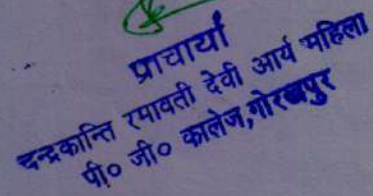 प्राचार्या
चन्द्रकान्ति रमावती देवी आर्य महिला
पी० जी० कालेज,गोरखपुर